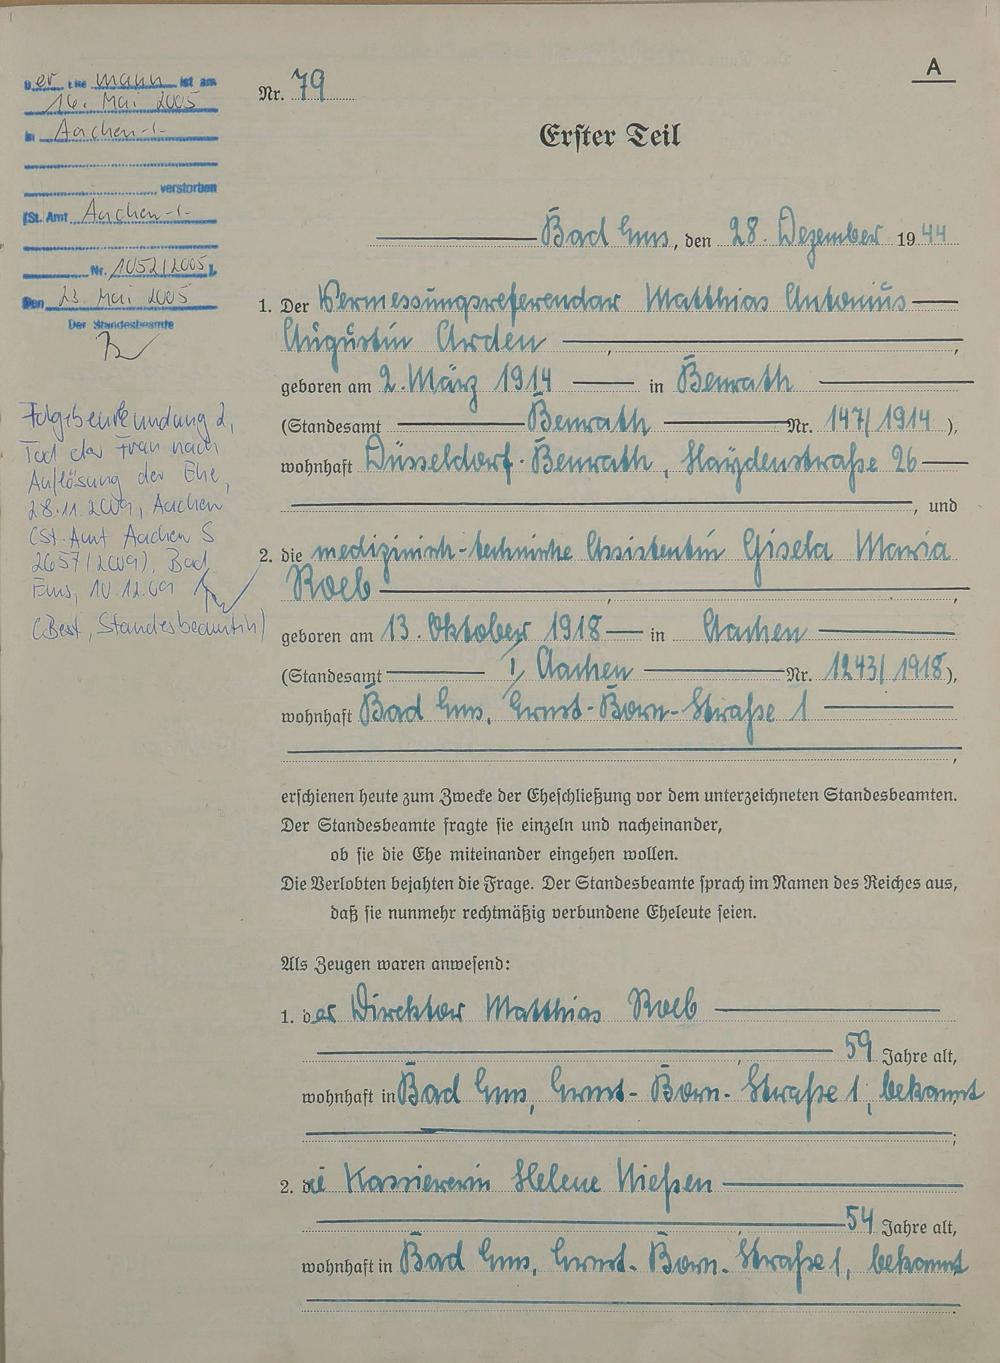 Der Ehe mann ist am
16. Mai 2005
in Aachen -/-
verstorben
(St. Amt Aachen -/-
Nr. 1052/2005).
Den 23. Mai 2005
Der Standesbeamte
Folgebeurkundung 2,
Tod der Frau nach
Auflösung der Ehe,
28.11.2009, Aachen
(St. Amt Aachen S
2657/2009), Bad
Ems, 10.12.09
(Best, Standesbeamtin)
A
Nr. 79
Erster Teil
Bad Ems, den 28. Dezember 1944
1. Der Vermessungsreferendar Matthias Antonius
Augustin Arden,
geboren am 2. März 1914 in Benrath
(Standesamt Benrath Nr. 147/1914),
wohnhaft Düsseldorf-Benrath, Haydenstraße 26
, und
2. die medizinisch-technische Assistentin Gisela Maria
Roeb,
geboren am 13. Oktober 1918 in Aachen
(Standesamt I, Aachen Nr. 1243/1918),
wohnhaft Bad Ems, Ernst-Born-Straße 1
,
erschienen heute zum Zwecke der Eheschließung vor dem unterzeichneten Standesbeamten.
Der Standesbeamte fragte sie einzeln und nacheinander,
ob sie die Ehe miteinander eingehen wollen.
Die Verlobten bejahten die Frage. Der Standesbeamte sprach im Namen des Reiches aus,
daß sie nunmehr rechtmäßig verbundene Eheleute seien.
Als Zeugen waren anwesend:
1. der Direktor Matthias Roeb
, 59 Jahre alt,
wohnhaft in Bad Ems, Ernst-Born-Straße 1, bekannt
;
2. die Kassiererin Helene Nießen
, 54 Jahre alt,
wohnhaft in Bad Ems, Ernst-Born-Straße 1, bekannt
.